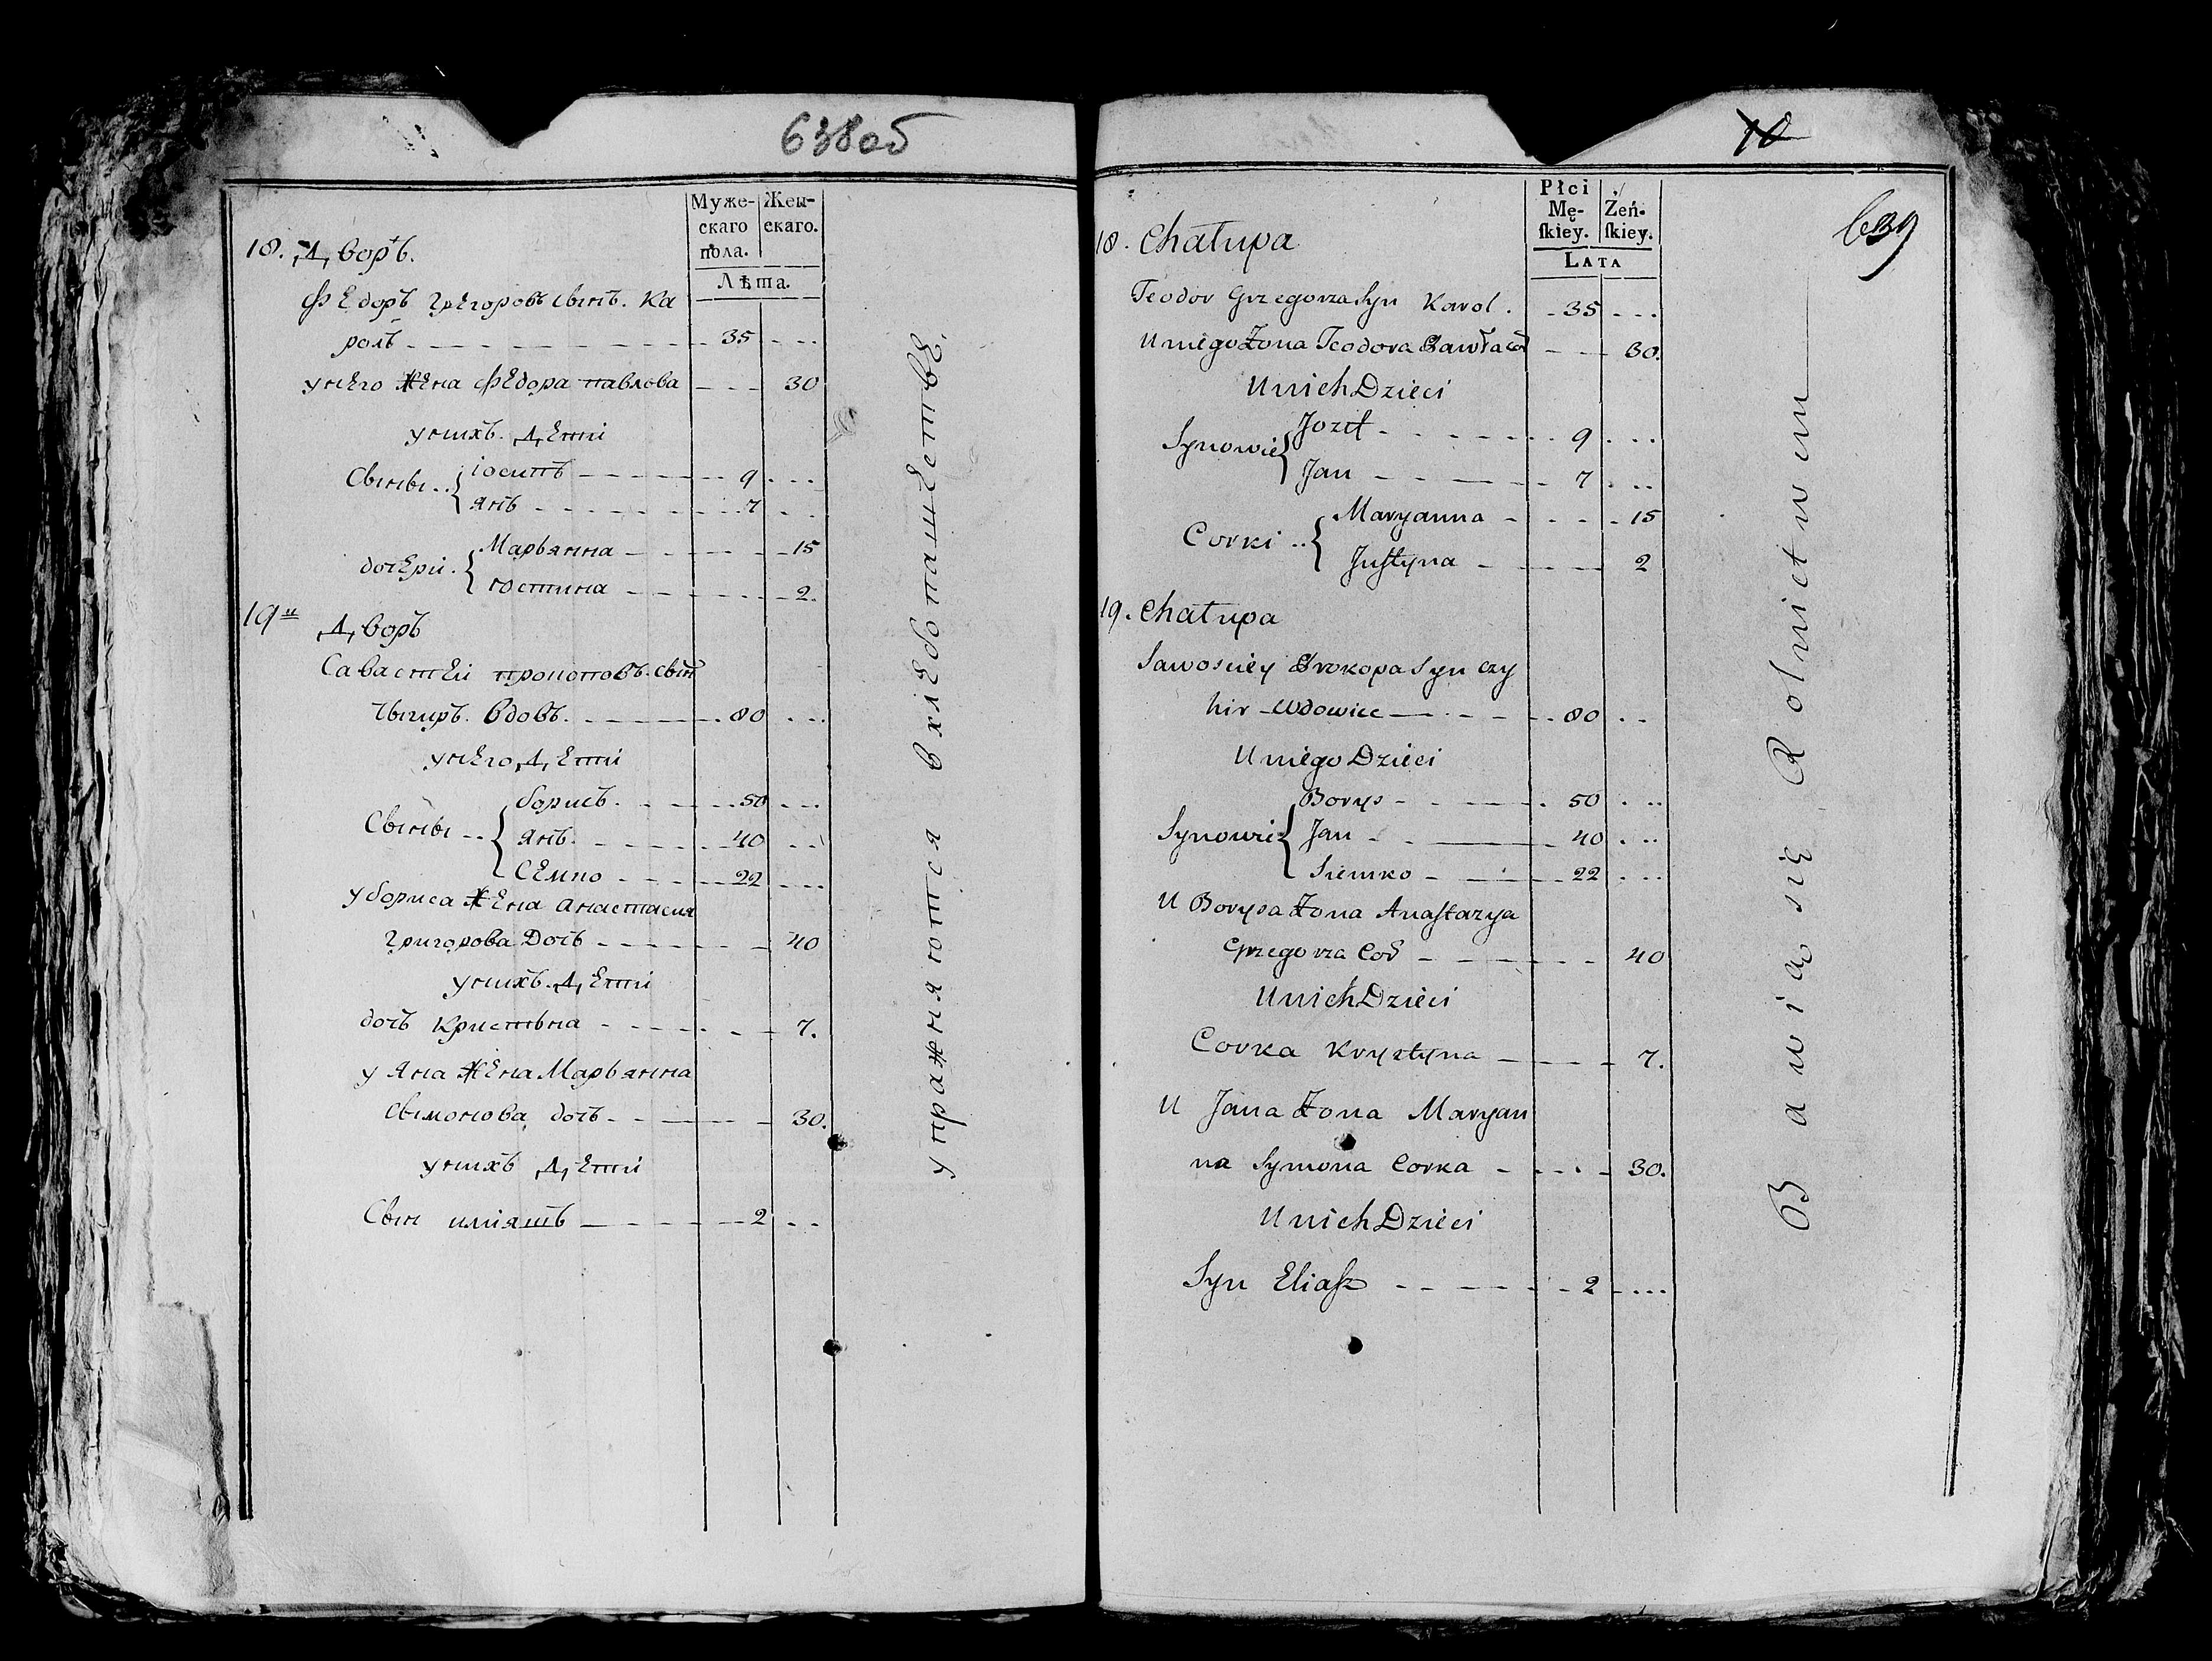 638об
Муже-
скаго
пола.
Жен-
скаго.
Лѣта.
18. Дворъ.
Федоръ григоровъ сынъ. Ка
роль 35
унего жена федора павлова 30
унихъ. Дети
Сыны
іосипъ 9
янъ 7
дочери.
Марьянна 15
юстина 2.
19й Дворъ
Савастеи прокоповъ. сынъ
Чыгиръ. вдовъ. 80
унего Дети
Сыны
борисъ. 50
янъ. 40
Семко 22
убориса жена анастасия
григорова Дочь 40
унихъ. Дети
дочь кристына 7.
у яна жена Марьянна
сымонова дочь 30.
унихъ Дети
Сын илияшъ 2
упражняются вхлебопашестве.
10
639
Płci
Mę-
skiey.
Żeń-
skiey.
LATA
18. Chałupa
Teodor Grzegorza Syn Karol. 35
U niego Żona Teodora Pawła Cor 30.
U nich Dzieci
Synowie
Jozef 9
Jan 7
Corki
Maryanna 15
Justyna 2
19. Chałupa
Sawosciey Prokopa Syn Czy
hir Wdowiec 80
U niego Dzieci
Synowie
Borys 50
Jan 40
Siemko 22
U Borysa Żona Anastazya
Grzegorza Cor 40
U nich Dzieci
Corka Krystyna 7.
U Jana Żona Maryan
na Symona Corka 30.
U nich Dzieci
Syn Eliasz 2
Bawią się Rolnictwem